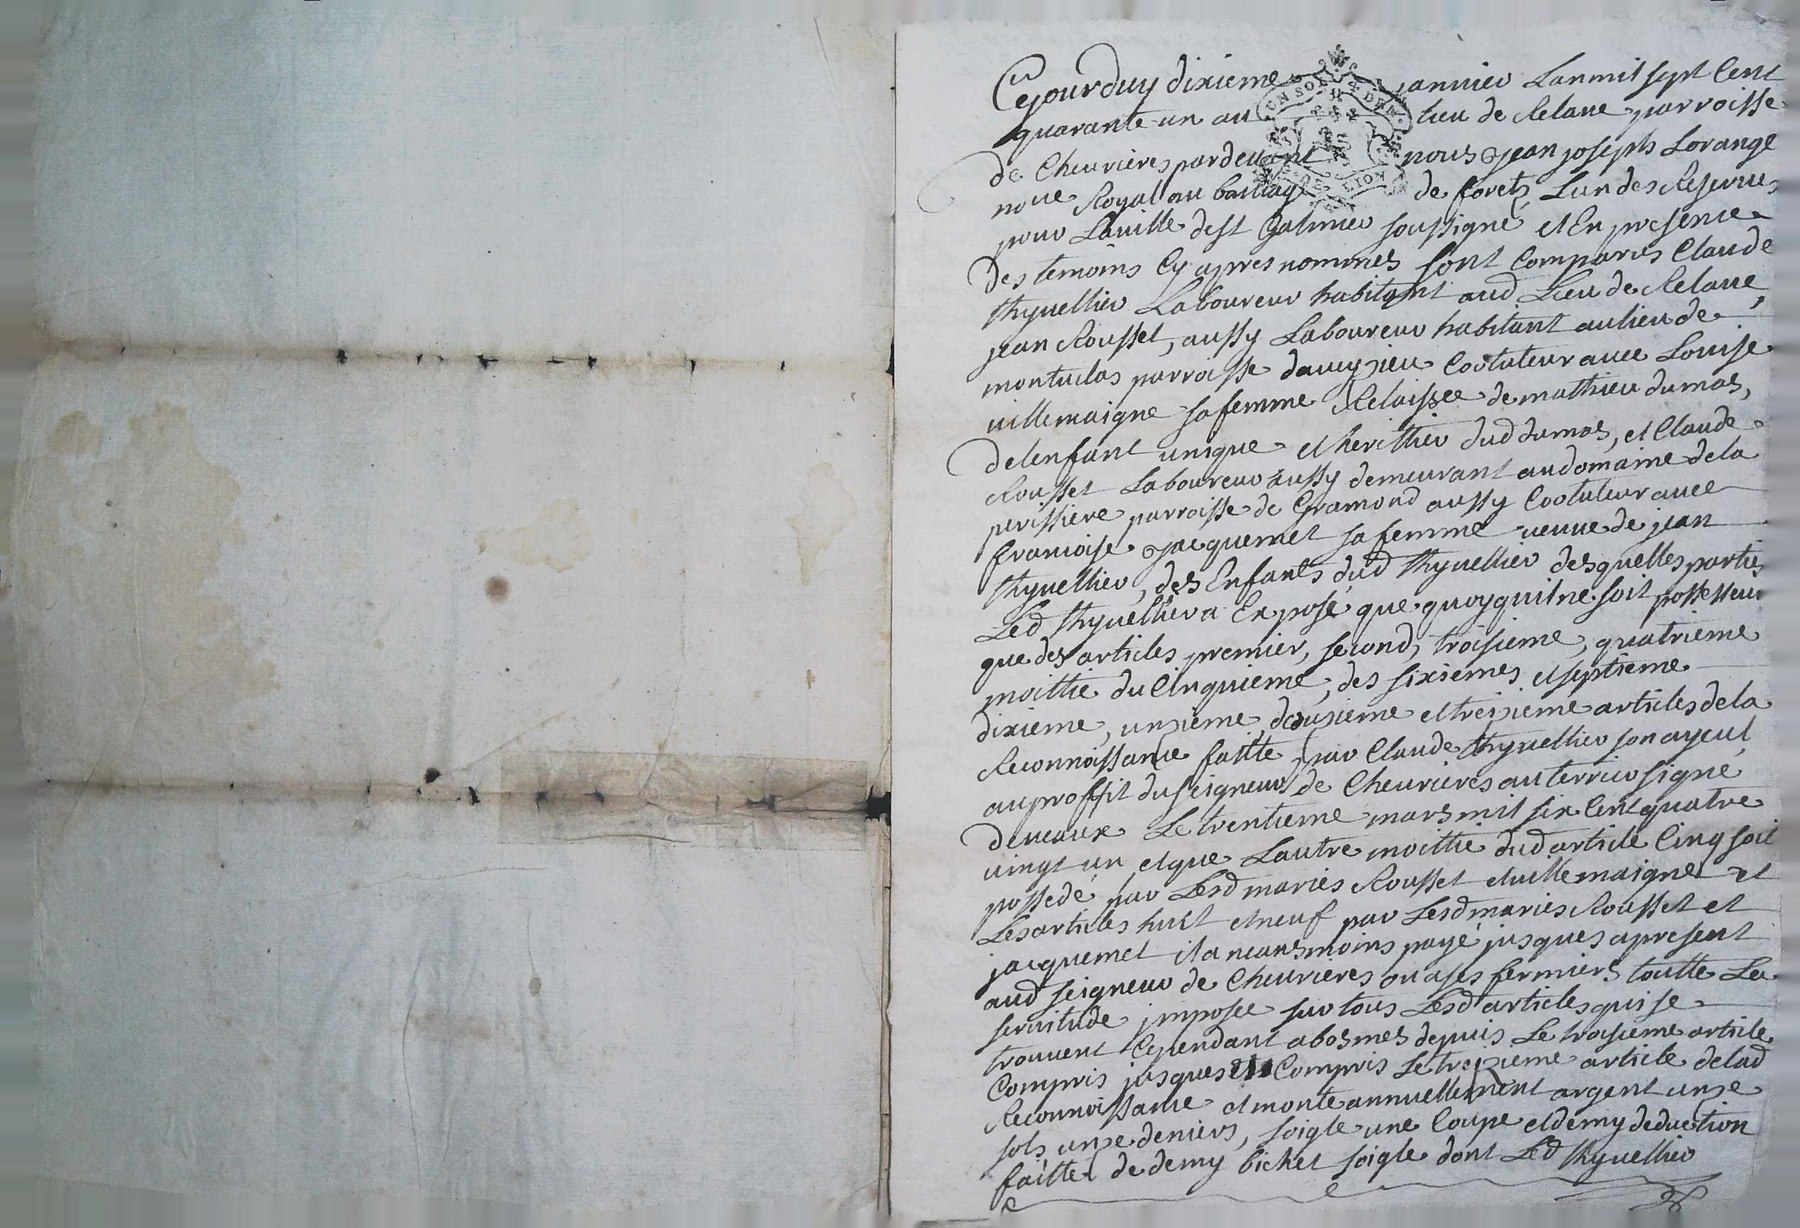 Cejourduy dixieme janvier Lan mil sept Cent
quarante un au lieu de Relave parroisse
de Chevrieres pardevant nous Jean joseph Lorange
nore Royal au bailliage de forets, Lun des Reserves
pour Laville de st Galmier soussigné et En presence
Des temoins Cy apres nommés sont Comparus Claude
thyvellier Laboureur habitant aud Lieu de Relave,
jean Rousset, aussy Laboureur habitant au lieu de
montuclas parroisse daveyzieu Cotuteur avec Louise
villemaigne sa femme Relaissée de mathieu dumas,
de lenfant unique et heritier dud dumas, et Claude
Rousset Laboureur aussy demeurant au domaine de la
perissiere parroisse de Gramond aussy Cotuteur avec
francoise Jacquemet sa femme veuve de jean
thyvellier, des Enfants dud thyvellier desquelles parties
Led thyvellier a Exposé que quoyquil ne soit possesseur
que des articles premier, second, troisieme, quatrieme
moittié du Cinquieme, des sixiemes et septieme
dixieme, unzieme, douzieme et treizieme articles de la
Reconnoissance faitte par Claude thyvellier son ayeul
au proffit du seigneur de Chevrieres au terrier signé
deveaux Le trentieme mars mil six Cent quatre
vingt un et que Lautre moittié dud article Cinq soit
possedé par Lesd mariés Rousset et villemaigne et
Les articles huit et neuf par Lesd mariés Rousset et
jacquemet il a neansmoins payé jusques a present
aud seigneur de Chevrieres ou a ses fermiers toutte La
servitude imposée sur tous Lesd articles qui se
trouvent Cependant abosmés depuis Le troisieme article
Compris jusques Compris Le treizieme article de lad
Reconnoissance et monte annuellement argent unze
sols unze deniers, soigle une Coupe et demy deduction
faitte de demy bichet soigle dont Led thyvellier